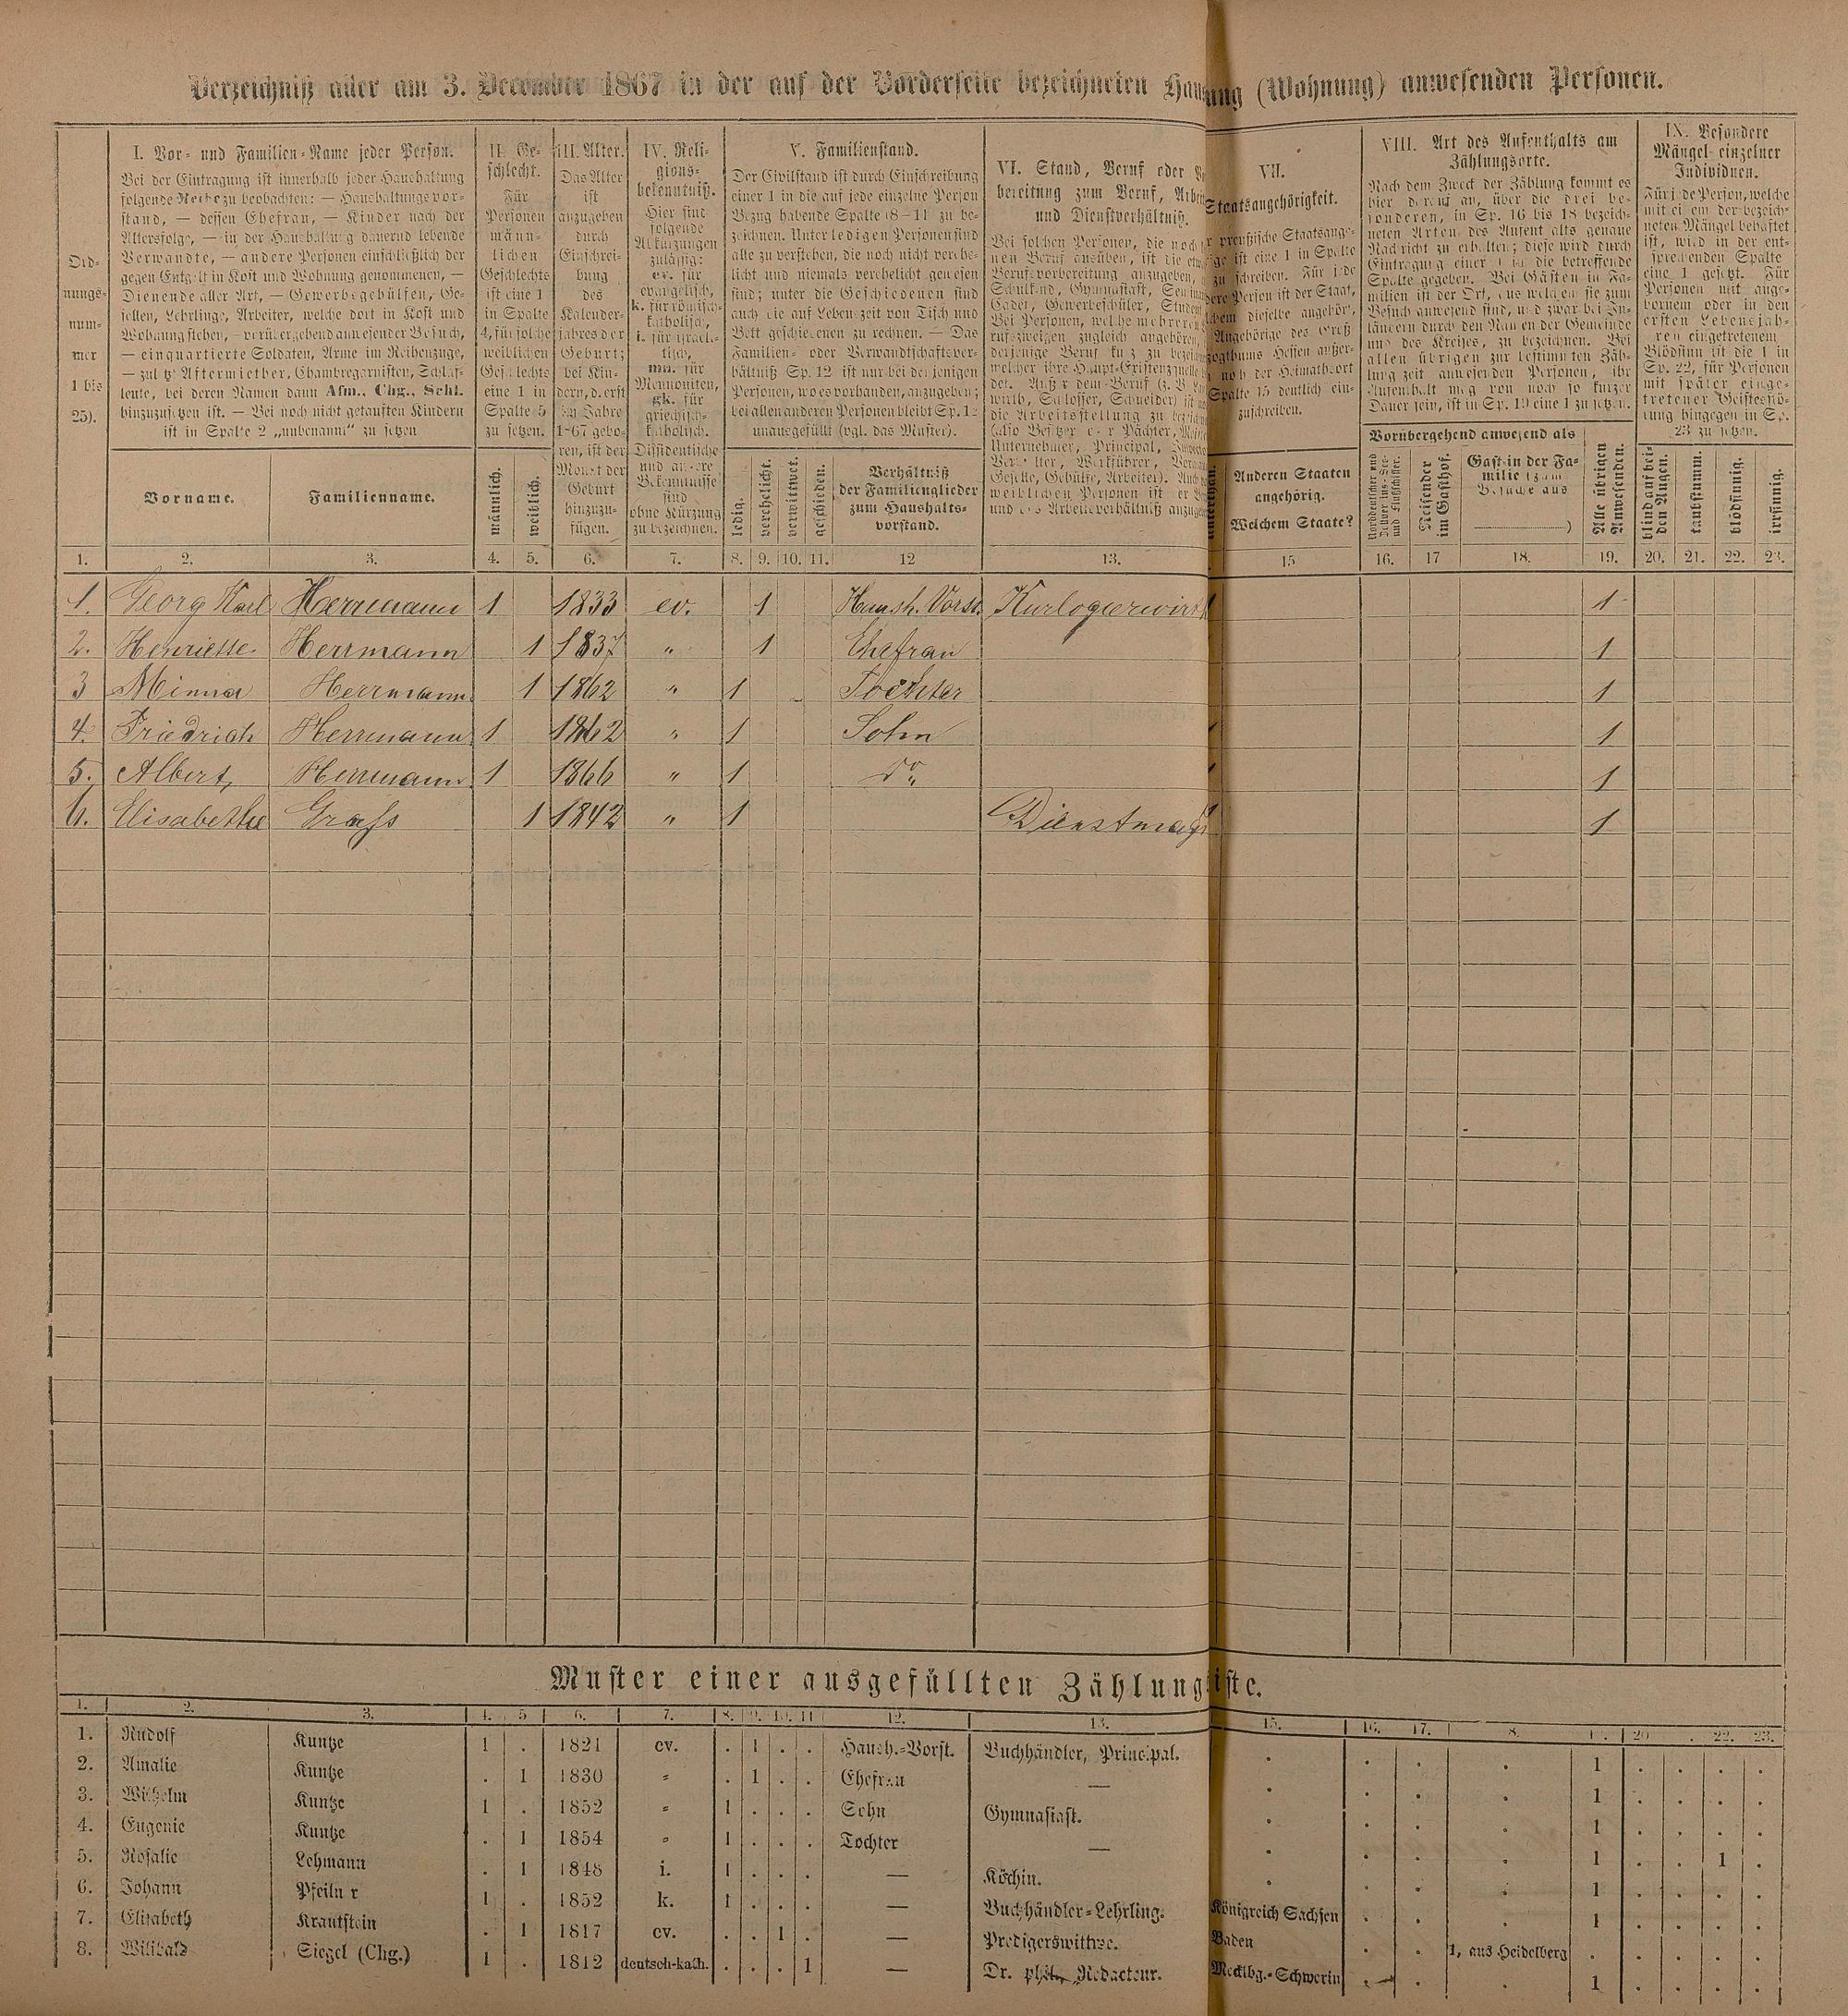 Verzeichniß aller am 3. December 1867 in der auf der Vorderseite bezeichneten Hausung (Wohnung) anwesenden Personen.
Ord-
nungs-
num-
mer
1 bis
25).
I. Vor- und Familien-Name jeder Person.
Bei der Eintragung ist innerhalb jeder Haushaltung
folgende Reihe zu beobachten: — Haushaltungsvor-
stand, — dessen Ehefrau, — Kinder nach der
Altersfolge, — in der Haushaltung dauernd lebende
Verwandte, — andere Personen einschließlich der
gegen Entgelt in Kost und Wohnung genommenen, —
Dienende aller Art, — Gewerbsgehülfen, Ge-
sellen, Lehrlinge, Arbeiter, welche dort in Kost und
Wohnung stehen, — vorübergehend anwesender Besuch,
— einquartierte Soldaten, Arme im Reihenzuge,
— zuletzt Aftermiether, Chambregarnisten, Schlaf-
leute, bei deren Namen dann Afm., Chg., Schl.
hinzuzusetzen ist. — Bei noch nicht getauften Kindern
ist in Spalte 2 „unbenannt" zu setzen
Vorname.
Familienname.
II. Ge-
schlecht.
Für
Personen
männ-
lichen
Geschlechts
ist eine 1
in Spalte
4, für solche
weiblichen
Geschlechts
eine 1 in
Spalte 5
zu setzen.
männlich.
weiblich.
III. Alter.
Das Alter
ist
anzugeben
durch
Einschrei-
bung
des
Kalender-
jahres der
Geburt;
bei Kin-
dern, d. erst
im Jahre
1867 gebo-
ren, ist der
Monat der
Geburt
hinzuzu-
fügen.
IV. Reli-
gions-
bekenntniß.
Hier sind
folgende
Abkürzungen
zulässig:
ev. für
evangelisch,
k. für römisch-
katholisch,
i. für israeli-
tisch,
mn. für
Mennoniten,
gk. für
griechisch-
katholisch.
Dissidentische
und andere
Bekenntnisse
sind
ohne Kürzung
zu bezeichnen.
V. Familienstand.
Der Civilstand ist durch Einschreibung
einer 1 in die auf jede einzelne Person
Bezug habende Spalte (8—11) zu be-
zeichnen. Unter ledigen Personen sind
alle zu verstehen, die noch nicht verehe-
licht und niemals verehelicht gewesen
sind; unter die Geschiedenen sind
auch die auf Lebenszeit von Tisch und
Bett geschiedenen zu rechnen. — Das
Familien- oder Verwandtschaftsver-
hältniß Sp. 12 ist nur bei denjenigen
Personen, wo es vorhanden, anzugeben;
bei allen anderen Personen bleibt Sp. 12
unausgefüllt (vgl. das Muster).
ledig.
verehelicht.
verwittwet.
geschieden.
Verhältniß
der Familienglieder
zum Haushalts-
vorstand.
VI. Stand, Beruf oder
bereitung zum Beruf,
und Dienstverhältniß.
Bei solchen Personen, die noch
nen Beruf ausüben, ist die
Berufsvorbereitung anzugeben,
Schulkind, Gymnasiast,
Cadet, Gewerbeschüler,
Bei Personen, welche mehreren
rufszweigen zugleich angehören,
derjenige Beruf
welcher ihre Haupt-Existenzquelle
VII.
Staatsangehörigkeit.
preußische Staatsange-
ist eine 1 in Spalte
zu schreiben. Für jede
Person ist der Staat,
dieselbe angehört,
Angehörige des Groß-
Hessen außer-
noch der Heimathsort
Spalte 15 deutlich ein-
zuschreiben.
Anderen Staaten
angehörig.
Welchem Staate?
VIII. Art des Aufenthalts am
Zählungsorte.
Nach dem Zweck der Zählung kommt es
hier darauf an, über die drei be-
sonderen, in Sp. 16 bis 18 bezeich-
neten Arten des Aufenthalts genaue
Nachricht zu erhalten; diese wird durch
Eintragung einer 1 in die betreffende
Spalte gegeben. Bei Gästen in Fa-
milien ist der Ort, aus welchem sie zum
Besuch anwesend sind, und zwar bei In-
ländern durch den Namen der Gemeinde
und des Kreises, zu bezeichnen. Bei
allen übrigen zur bestimmten Zäh-
lungszeit anwesenden Personen, ihr
Aufenthalt mag von noch so kurzer
Dauer sein, ist in Sp. 19 eine 1 zu setzen.
Vorübergehend anwesend als
Reisender
im Gasthof.
Gast in der Fa-
milie (zum
Besuche aus
)
Alle übrigen
Anwesenden.
IX. Besondere
Mängel einzelner
Individuen.
Für jede Person, welche
mit einem der bezeich-
neten Mängel behaftet
ist, wird in der ent-
sprechenden Spalte
eine 1 gesetzt. Für
Personen mit ange-
bornem oder in den
ersten Lebensjah-
ren eingetretenem
Blödsinn ist die 1 in
Sp. 22, für Personen
mit später einge-
tretener Geistesstö-
rung hingegen in Sp.
23 zu setzen.
blind auf bei-
den Augen.
taubstumm.
blödsinnig.
irrsinnig.
1. 2. 3. 4. 5. 6. 7. 8. 9. 10. 11. 12 13. 15 16. 17 18. 19. 20. 21. 22. 23.
1. Georg Karl Herrmann 1 1833 ev. 1 Haush. Vorst. Kurlogierwirth 1
2. Henriette Herrmann 1 1837 " 1 Ehefrau 1
3 Minna Herrmann 1 1862 " 1 Tochter 1
4. Friedrich Herrmann 1 1862 " 1 Sohn 1
5. Albert, Herrmann 1 1866 " 1 do. 1
6. Elisabethe Grass 1 1842 " 1 Dienstmagd 1
Muster einer ausgefüllten Zählungsliste.
1. 2. 3. 4. 5 6. 7. 8. 9. 10. 11 12. 13. 15. 16. 17. 8. 20 22. 23.
1. Rudolf Kuntze 1 . 1821 ev. . 1 . . Haush.-Vorst. Buchhändler, Principal. . . . . 1 . . . .
2. Amalie Kuntze . 1 1830 " . 1 . . Ehefrau — . . . . 1 . . . .
3. Wilhelm Kuntze 1 . 1852 " 1 . . . Sohn Gymnasiast. . . . . 1 . . . .
4. Eugenie Kuntze . 1 1854 " 1 . . . Tochter — . . . . 1 . . 1 .
5. Rosalie Lehmann . 1 1848 i. 1 . . . — Köchin. . . . . 1 . . . .
6. Johann Pfeilner 1 . 1852 k. 1 . . . — Buchhändler-Lehrling. Königreich Sachsen . . . 1 . . . .
7. Elisabeth Krautstein . 1 1817 ev. . . 1 . — Predigerswittwe. Baden . . 1, aus Heidelberg . . . . .
8. Wilibald Siegel (Chg.) 1 . 1812 deutsch-kath. . . . 1 — Dr. phil., Redacteur. Mecklbg.-Schwerin . . . 1 . . . .